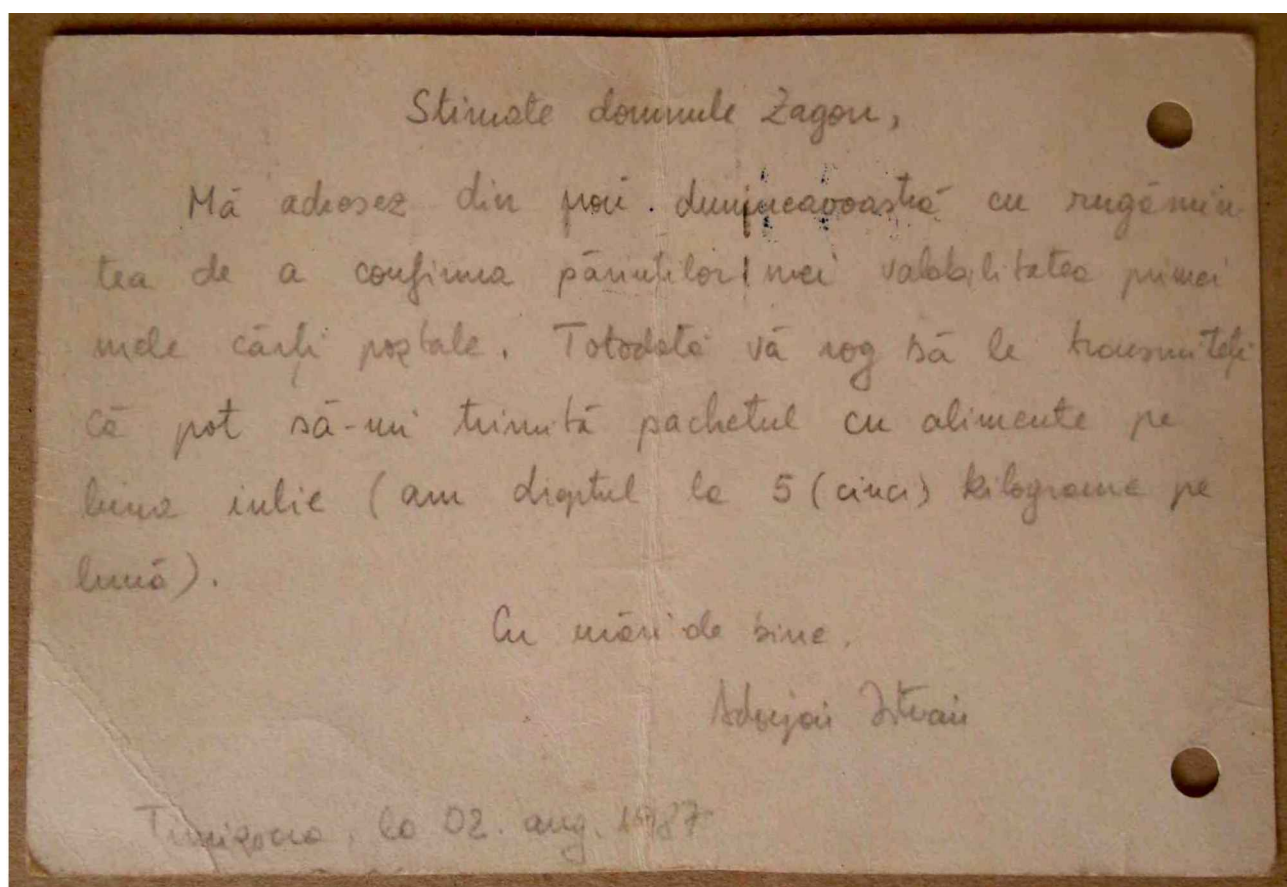 Stimate domnule Zagon,
Mă adresez din nou dumneavoastră cu rugămin-
tea de a confirma părinților mei valabilitatea primei
mele cărți poștale. Totodată vă rog să le transmiteți
că pot să-mi trimită pachetul cu alimente pe
luna iulie (am dreptul la 5 (cinci) kilograme pe
lună).
Cu urări de bine.
Adorjan Istvan
Timișoara, la 02. aug. 1987